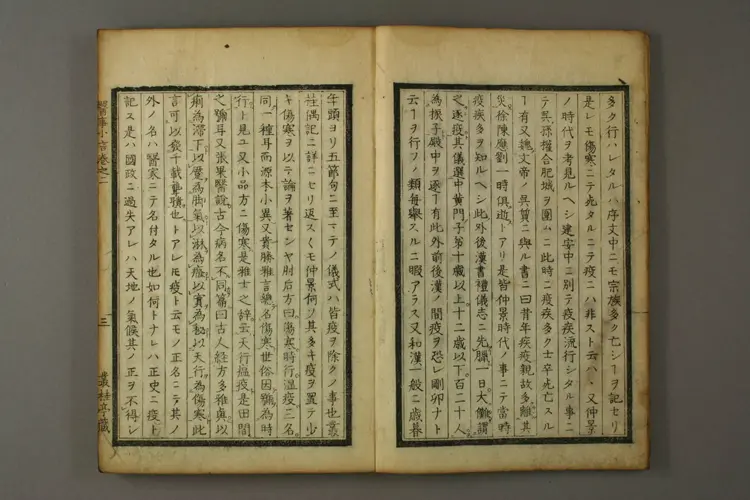 多ク行ハレタルハ序文中ニモ宗族多ク亡シヿヲ記セリ
是レモ傷寒ニテ死タルニテ疫ニハ非スト云ハヽ又仲景
ノ時代ヲ考見ルヘシ建安中ニ別テ疫疾流行シタル事ニ
テ呉孫權合肥城ヲ圍ムニ此時ニ疫疾多ク士卒死亡スル
ヿ有又魏文帝ノ呉質ニ與ル書ニ曰昔年疾疫親故多離其
災徐陳應劉一時俱逝トアリ是皆仲景時代ノ事ニテ當時
疫疾多ヲ知ルヘシ此外後漢書禮儀志ニ先臘一日大儺謂
之逐疫其儀選中黄門子弟十歳以上十二歳以下百二十人
為侲子殿中ヲ逐ヿ有此外前後漢ノ間疫ヲ恐レ剛卯ナト
云ヿヲ行フノ類毎擧スルニ暇アラス又和漢一般ニ歳暮
年頭ヨリ五節句ニ至マテノ儀式ハ皆疫ヲ除クノ事也叢
桂偶記ニ詳ニセリ返スくモ仲景何ノ其多キ疫ヲ置テ少
キ傷寒ヲ以テ論ヲ著センヤ肘后方曰傷寒時行温疫三名
同一種耳而源本小異又貴勝雅言總名傷寒世俗因號為時
行ト見ユ又小品方ニ傷寒是雅士之辭云天行瘟疫是田間
之號耳又張杲醫說古今病名不同篇曰古人經方多雅奥以
痢為滯下以躄為脚氣以淋為癃以實為秘以天行為傷寒此
言可以發千載聾聵也トアレモ疫ト云モノ正名ニテ其ノ
外ノ名ハ醫家ニテ名付タル也如何トナレハ正史ニ疫ト
記ス是ハ國政ニ過失アレハ天地ノ氣候其ノ正ヲ不得シ
醫事小言卷之二
三
叢桂亭藏